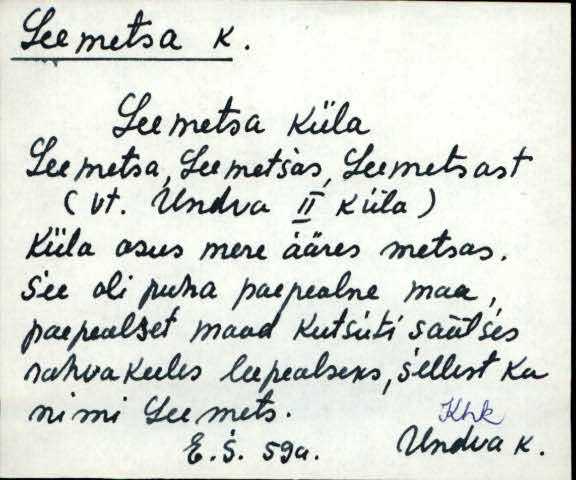 Leemetsa k.
Leemetsa küla
Leemetsa, Leemetsas, Leemetsast
(vt. Undva II küla)
Küla asus mere ääres metsas.
See oli puha paepealne maa,
paepealset maad kutsuti säälses
rahvakeeles leepealseks, sellest ka
nimi Leemets.
Khk
E. S. 59a. Undva k.